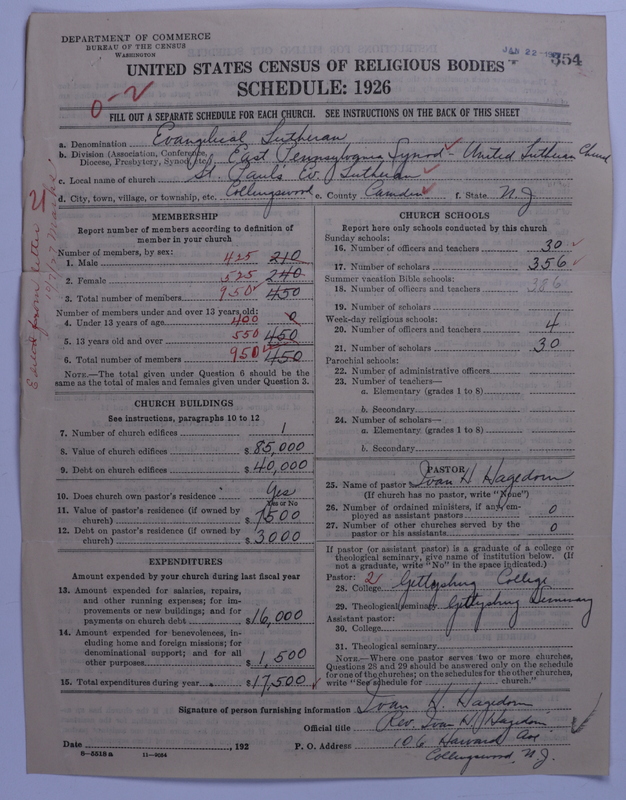 DEPARTMENT OF COMMERCE
BUREAU OF THE CENSUS
WASHINGTON
JAN 22
354
UNITED STATES CENSUS OF RELIGIOUS BODIES
SCHEDULE: 1926
0-2
FILL OUT A SEPARATE SCHEDULE FOR EACH CHURCH. SEE INSTRUCTIONS ON THE BACK OF THIS SHEET
a. Denomination Evangelical Lutheran
b. Division (Association, Conference, Diocese, Presbytery, Synod, etc.) East Pennsylvania Synod - United Lutheran Church
c. Local name of church St. Pauls Ev. Lutheran
d. City, town, village, or township, etc. Collingswood e. County Camden f. State N.J.
MEMBERSHIP
Report number of members according to definition of
member in your church
Number of members, by sex:
1. Male 425 210
2. Female 525 240
3. Total number of members 950 450
Number of members under and over 13 years old:
4. Under 13 years of age 400 0
5. 13 years old and over 550 450
6. Total number of members 950 450
NOTE.—The total given under Question 6 should be the
same as the total of males and females given under Question 3.
CHURCH BUILDINGS
See instructions, paragraphs 10 to 12
7. Number of church edifices 1
8. Value of church edifices $ 85,000
9. Debt on church edifices $ 40,000
10. Does church own pastor's residence Yes
Yes or No
11. Value of pastor's residence (if owned by
church) $ 7500
12. Debt on pastor's residence (if owned by
church) $ 3000
EXPENDITURES
Amount expended by your church during last fiscal year
13. Amount expended for salaries, repairs,
and other running expenses; for im-
provements or new buildings; and for
payments on church debt $ 16,000
14. Amount expended for benevolences, in-
cluding home and foreign missions; for
denominational support; and for all
other purposes $ 1,500
15. Total expenditures during year $ 17,500
CHURCH SCHOOLS
Report here only schools conducted by this church
Sunday schools:
16. Number of officers and teachers 30
17. Number of scholars 356
Summer vacation Bible schools:
18. Number of officers and teachers 386
19. Number of scholars
Week-day religious schools:
20. Number of officers and teachers 4
21. Number of scholars 30
Parochial schools:
22. Number of administrative officers
23. Number of teachers—
a. Elementary (grades 1 to 8)
b. Secondary
24. Number of scholars—
a. Elementary (grades 1 to 8)
b. Secondary
PASTOR
25. Name of pastor Ivan H. Hagedorn
(If church has no pastor, write "None")
26. Number of ordained ministers, if any, em-
ployed as assistant pastors 0
27. Number of other churches served by the
pastor or his assistants 0
If pastor (or assistant pastor) is a graduate of a college or
theological seminary, give name of institution below. (If
not a graduate, write "No" in the space indicated.)
Pastor: 2
28. College Gettysburg College
29. Theological seminary Gettysburg Seminary
Assistant pastor:
30. College
31. Theological seminary
NOTE.—Where one pastor serves two or more churches,
Questions 28 and 29 should be answered only on the schedule
for one of the churches; on the schedules for the other churches,
write "See schedule for church."
Signature of person furnishing information Ivan H. Hagedorn
Official title Rev. Ivan H. Hagedorn
Date , 192 P. O. Address 106 Harvard Ave
Collingswood, N.J.
8-5518a 11-3034